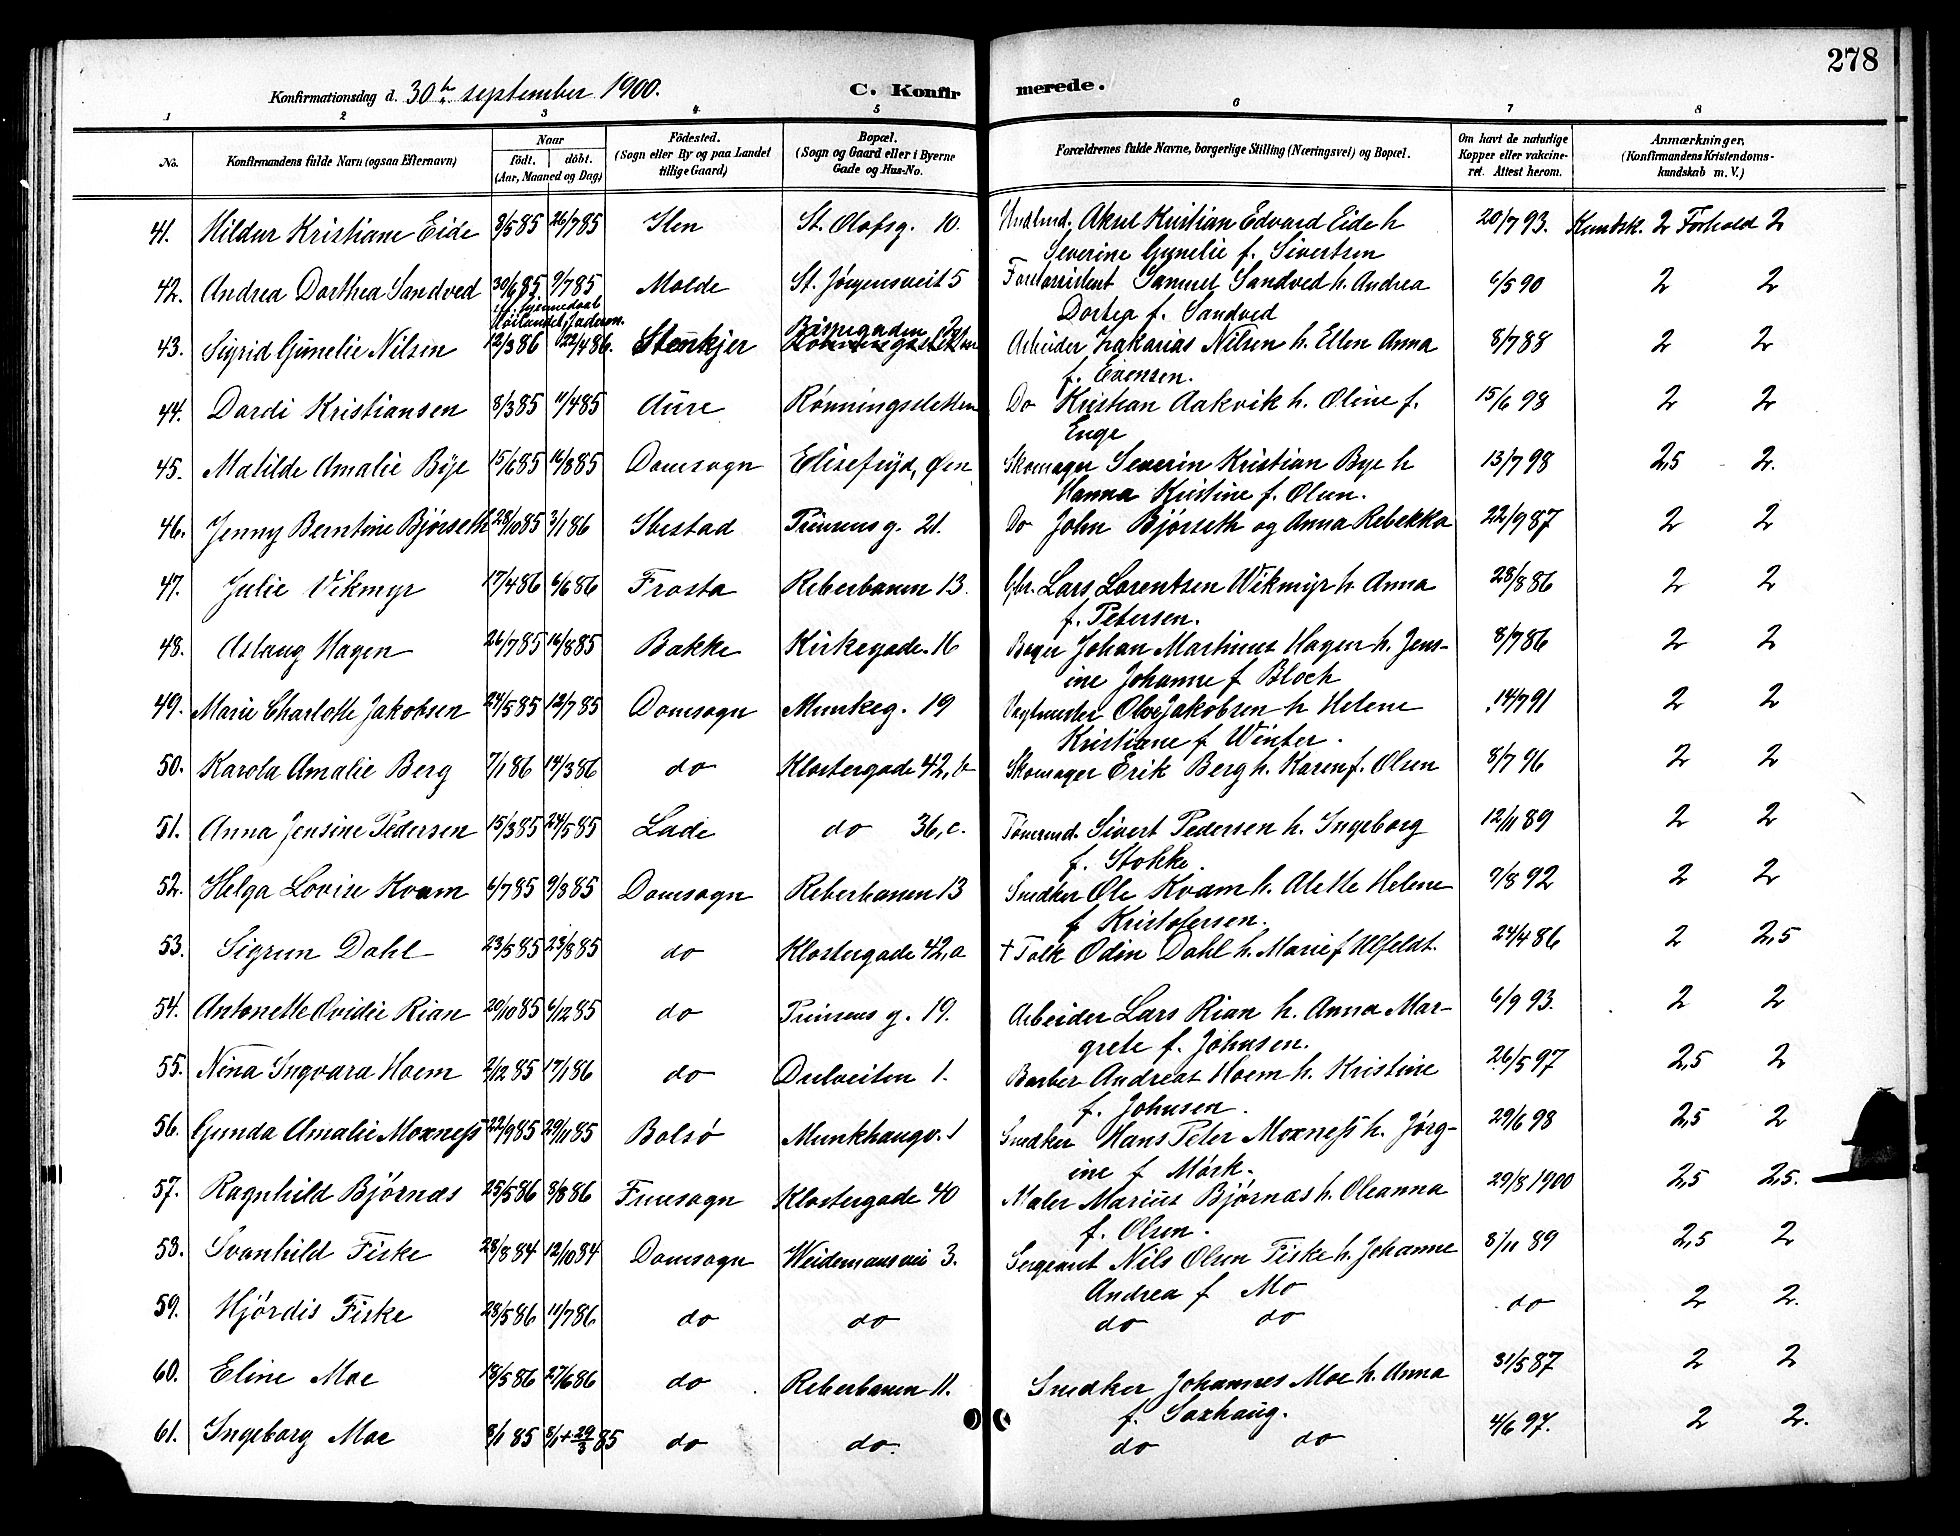 278
Konfirmationsdag d. 30te september 1900. C. Konfirmerede.
1 2 3 4 5 6 7 8
No. Konfirmandens fulde Navn (ogsaa Efternavn) Naar født. døbt. (Aar, Maaned og Dag) Fødested. (Sogn eller By og paa Landet tillige Gaard) Bopæl. (Sogn og Gaard eller i Byerne Gade og Hus-No. Forældrenes fulde Navne, borgerlige Stilling (Næringsvei) og Bopæl. Om havt de naturlige Kopper eller vakcineret. Attest herom. Anmærkninger, (Konfirmandens Kristendomskundskab m. V.)
41. Hildur Kristiane Eide 3/5 85 26/7 85 Ilen St. Olafsg. 10. Aksel Kristian Edvard Eide h 20/7 93. Kundsk. 2 Forhold 2
Severine Gunelie f. Sivertsen
42. Andrea Dorthea Sandved 30/6 85 9/7 85 Molde St. Jørgensveit 5 Samuel Sandved h. Andrea 6/5 90 2 2
Dortea f. Sandved
43. Sigrid Gunelie Nilsen 12/3 86 22/4 86. Stenkjer Arbeider Zakarias Nilsen h. Ellen Anna 8/7 88 2 2
f. Evensen.
44. Dordi Kristiansen 8/3 85 11/4 85 Aure Rønningsletten Do Kristian Aakvik h. Oline f. 15/6 98 2 2
Enge
45. Matilde Amalie Bye 15/6 85 16/8 85 Domsogn Elisefryd, Øen Skomager Severin Kristian Bye h 13/7 98 2,5 2.
Hanna Kristine f. Olsen.
46. Jenny Berntine Bjørseth 28/10 85 3/1 86 Ibestad Prinsens g. 21. Do John Bjørseth og Anna Rebekka 22/9 87 2 2
47. Julie Vikmyr 17/4 86 6/6 86 Frosta Reberbanen 13. Gbr. Lars Lorentsen Wikmyr h. Anna 28/8 86 2 2
f. Petersen.
48. Aslaug Hagen 26/7 85 16/8 85 Bakke Kirkegade. 16 Bager Johan Martinus Hagen h. Jens- 8/7 86 2 2
ine Johanne f Bloch
49. Marie Charlotte Jakobsen 24/5 85 12/7 85 Domsogn Munkeg. 19 Jakobsen h Helene 14/7 91 2 2
Kristiane f Winter.
50. Karola Amalie Berg 7/1 86 14/3 86 do Klostergade 42, b Skomager Erik Berg h. Karen f. Olsen 8/7 96 2 2
51. Anna Jensine Pedersen 15/3 85 24/5 85 Lade do 36, c. Tømmmd. Sivert Pedersen h. Ingeborg 12/11 89 2 2
f. Stokke.
52. Helga Lovise Kvam 6/7 85 9/8 85 Domsogn Reberbanen 13 Snedker Ole Kvam h. Alette Helene 9/8 92 2 2
f Kristofersen.
53. Sigrun Dahl 23/5 85 23/8 85 do Klostergade 42, a † Tolk Odin Dahl h. Marie f Ulfeldt. 24/4 86 2 2,5
54. Antonette Ovidie Rian 20/10 85 6/12 85 do Prinsens g. 19. Arbeider Lars Rian h. Anna Mar- 6/9 93. 2 2
grete f. Johnsen.
55. Nina Ingvara Hoem 2/12 85 17/1 86 do Dulveiten 1. Barber Andreas Hoem h. Kristine 26/5 97 2,5 2
f. Johnsen.
56. Gunda Amalie Moxness 22/9 85 29/11 85 Bolsø Munkhaugv. 1 Snedker Hans Peter Moxness h. Jørg- 29/6 98 2,5 2
ine f Mørk.
57. Ragnhild Bjørnæs 25/5 86 8/8 86 Fruesogn Klostergade 40 Maler Marius Bjørnæs h. Oleanna 29/8 1900 2,5 2,5.
f. Olsen.
58. Svanhild Fiske 28/8 84 12/10 84 Domsogn Weidemansvei 3. Sergeant Nils Olsen Fiske h. Johanne 8/11 89 2,5 2
Andrea f Mo
59. Hjørdis Fiske 28/5 86 11/7 86 do do do do do 2 2.
60. Eline Moe 18/5 86 27/6 86 do Reberbanen 11. Snedker Johannes Moe h. Anna 31/5 87 2 2
f. Saxhaug.
61. Ingeborg Moe 8/1 85 8/1 + 29/3 85 do do. do do 4/6 97. 2 2.